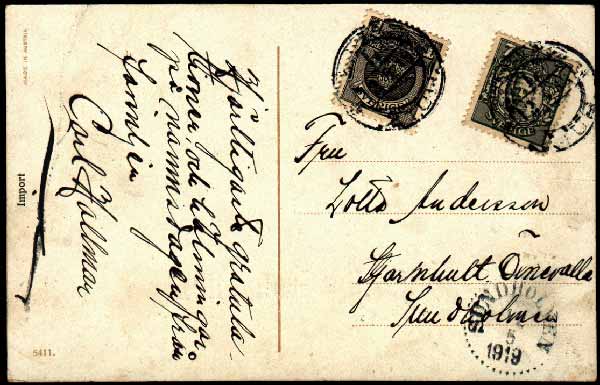 MADE IN AUSTRIA
Import
5411.
Hjärtligaste gratula-
tioner och hälsningar
på namnsdagen från
familjen
Carl Hallman
SVERIGE
SVERIGE
Fru
Lotto Andersson
Stjärnhult Önevalla
Sundholmen
SUNDHOLMEN
5
1919